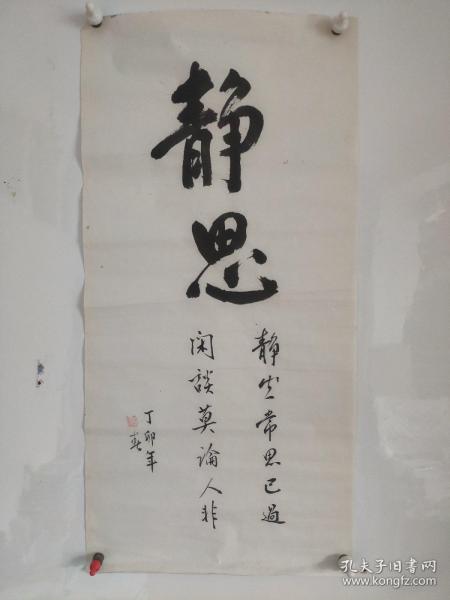 静思
静坐常思己過
闲談莫論人非
丁卯年
春
孔夫子旧书网
www.kongfz.com